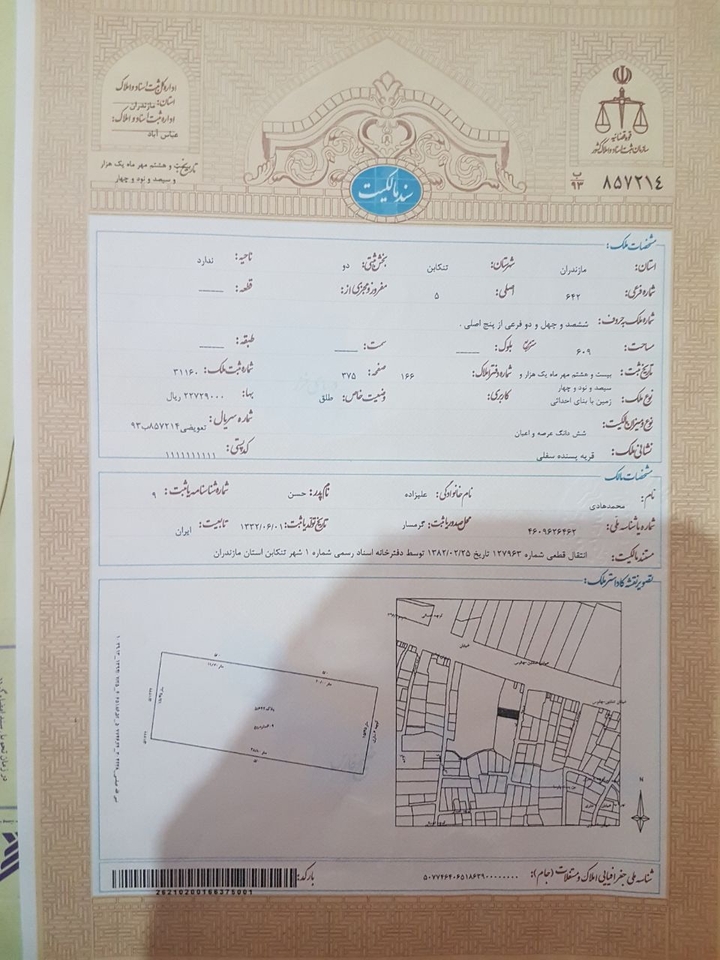 اداره کل ثبت اسناد و املاک
استان: مازندران
اداره ثبت اسناد و املاک:
عباس آباد
تاریخ: بیست و هشتم مهر ماه یک هزار
و سیصد و نود و چهار
قوه قضائیه
سازمان ثبت اسناد و املاک کشور
۸۵۷۲۱۴ ب ۹۳
سند مالکیت
مشخصات ملک:
استان: مازندران شهرستان: تنکابن بخش ثبتی: دو ناحیه: ندارد
شماره فرعی: ۶۴۲ اصلی: ۵ مفروز و مجزی از: ـــــ قطعه: ـــــ
شماره ملک به حروف: ششصد و چهل و دو فرعی از پنج اصلی .
مساحت: ۶۰۹ مترمربع بلوک: ـــــ سمت: ـــــ طبقه: ـــــ
تاریخ ثبت: بیست و هشتم مهر ماه یک هزار و سیصد و نود و چهار شماره دفتر املاک: ۱۶۶ صفحه: ۳۷۵ شماره ثبت ملک: ۳۱۱۶۰
نوع ملک: زمین با بنای احداثی کاربری: وضعیت خاص: طلق بها: ۲۲۷۲۹۰۰۰ ریال
نوع و میزان مالکیت: شش دانگ عرصه و اعیان شماره سریال: تعویضی۸۵۷۲۱۴ب۹۳
نشانی ملک: قریه پسنده سفلی کدپستی: ۱۱۱۱۱۱۱۱۱۱
مشخصات مالک:
نام: محمدهادی نام خانوادگی: علیزاده نام پدر: حسن شماره شناسنامه یا ثبت: ۹
شماره یا شناسه ملی: ۴۶۰۹۶۲۶۴۶۲ محل صدور یا ثبت: گرمسار تاریخ تولد یا ثبت: ۱۳۳۲/۰۶/۰۱ تابعیت: ایران
مستند مالکیت: انتقال قطعی شماره ۱۲۷۹۶۳ تاریخ ۱۳۸۲/۰۲/۲۵ توسط دفترخانه اسناد رسمی شماره ۱ شهر تنکابن استان مازندران
تصویر نقشه کاداستر ملک:
N
شناسه ملی جغرافیایی املاک و مستغلات (جام): ۵۰۷۷۴۶۴۰۶۵۱۸۶۲۹۰۰۰۰۰۰۰۰
بارکد:
26210200166375001